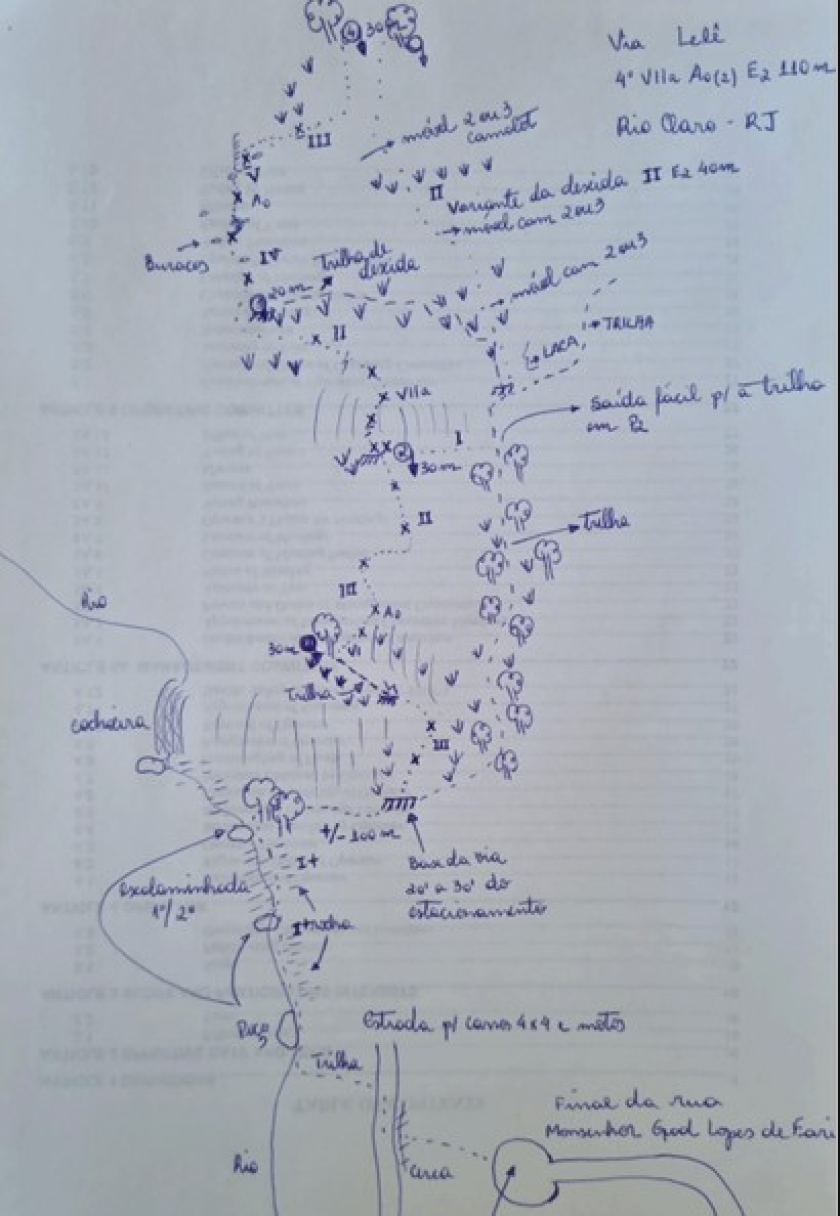 Via Lelê
4º VIIa A0(2) E2 110m
Rio Claro - RJ
4
30
III
móvel 2 ou 3
camalot
V
A0
II
Variante da descida II E2 40m
móvel cam 2 ou 3
Buracos
IV
Trilha de
descida
móvel cam 2 ou 3
20m
II
LACA
TRILHA
VIIa
Saída fácil p/ a trilha
em P2
I
2
30m
II
Trilha
III
Rio
A0
30m
VI
Trilha
cachoeira
III
+/- 100m
I+
Base da via
20' a 30' do
estacionamento
Escalaminhada
1º/2º
I+
rocha
Poço
Estrada p/ carros 4x4 e motos
Trilha
Final da rua
Monsenhor Gpod Lopes de Fari
Rio
cerca